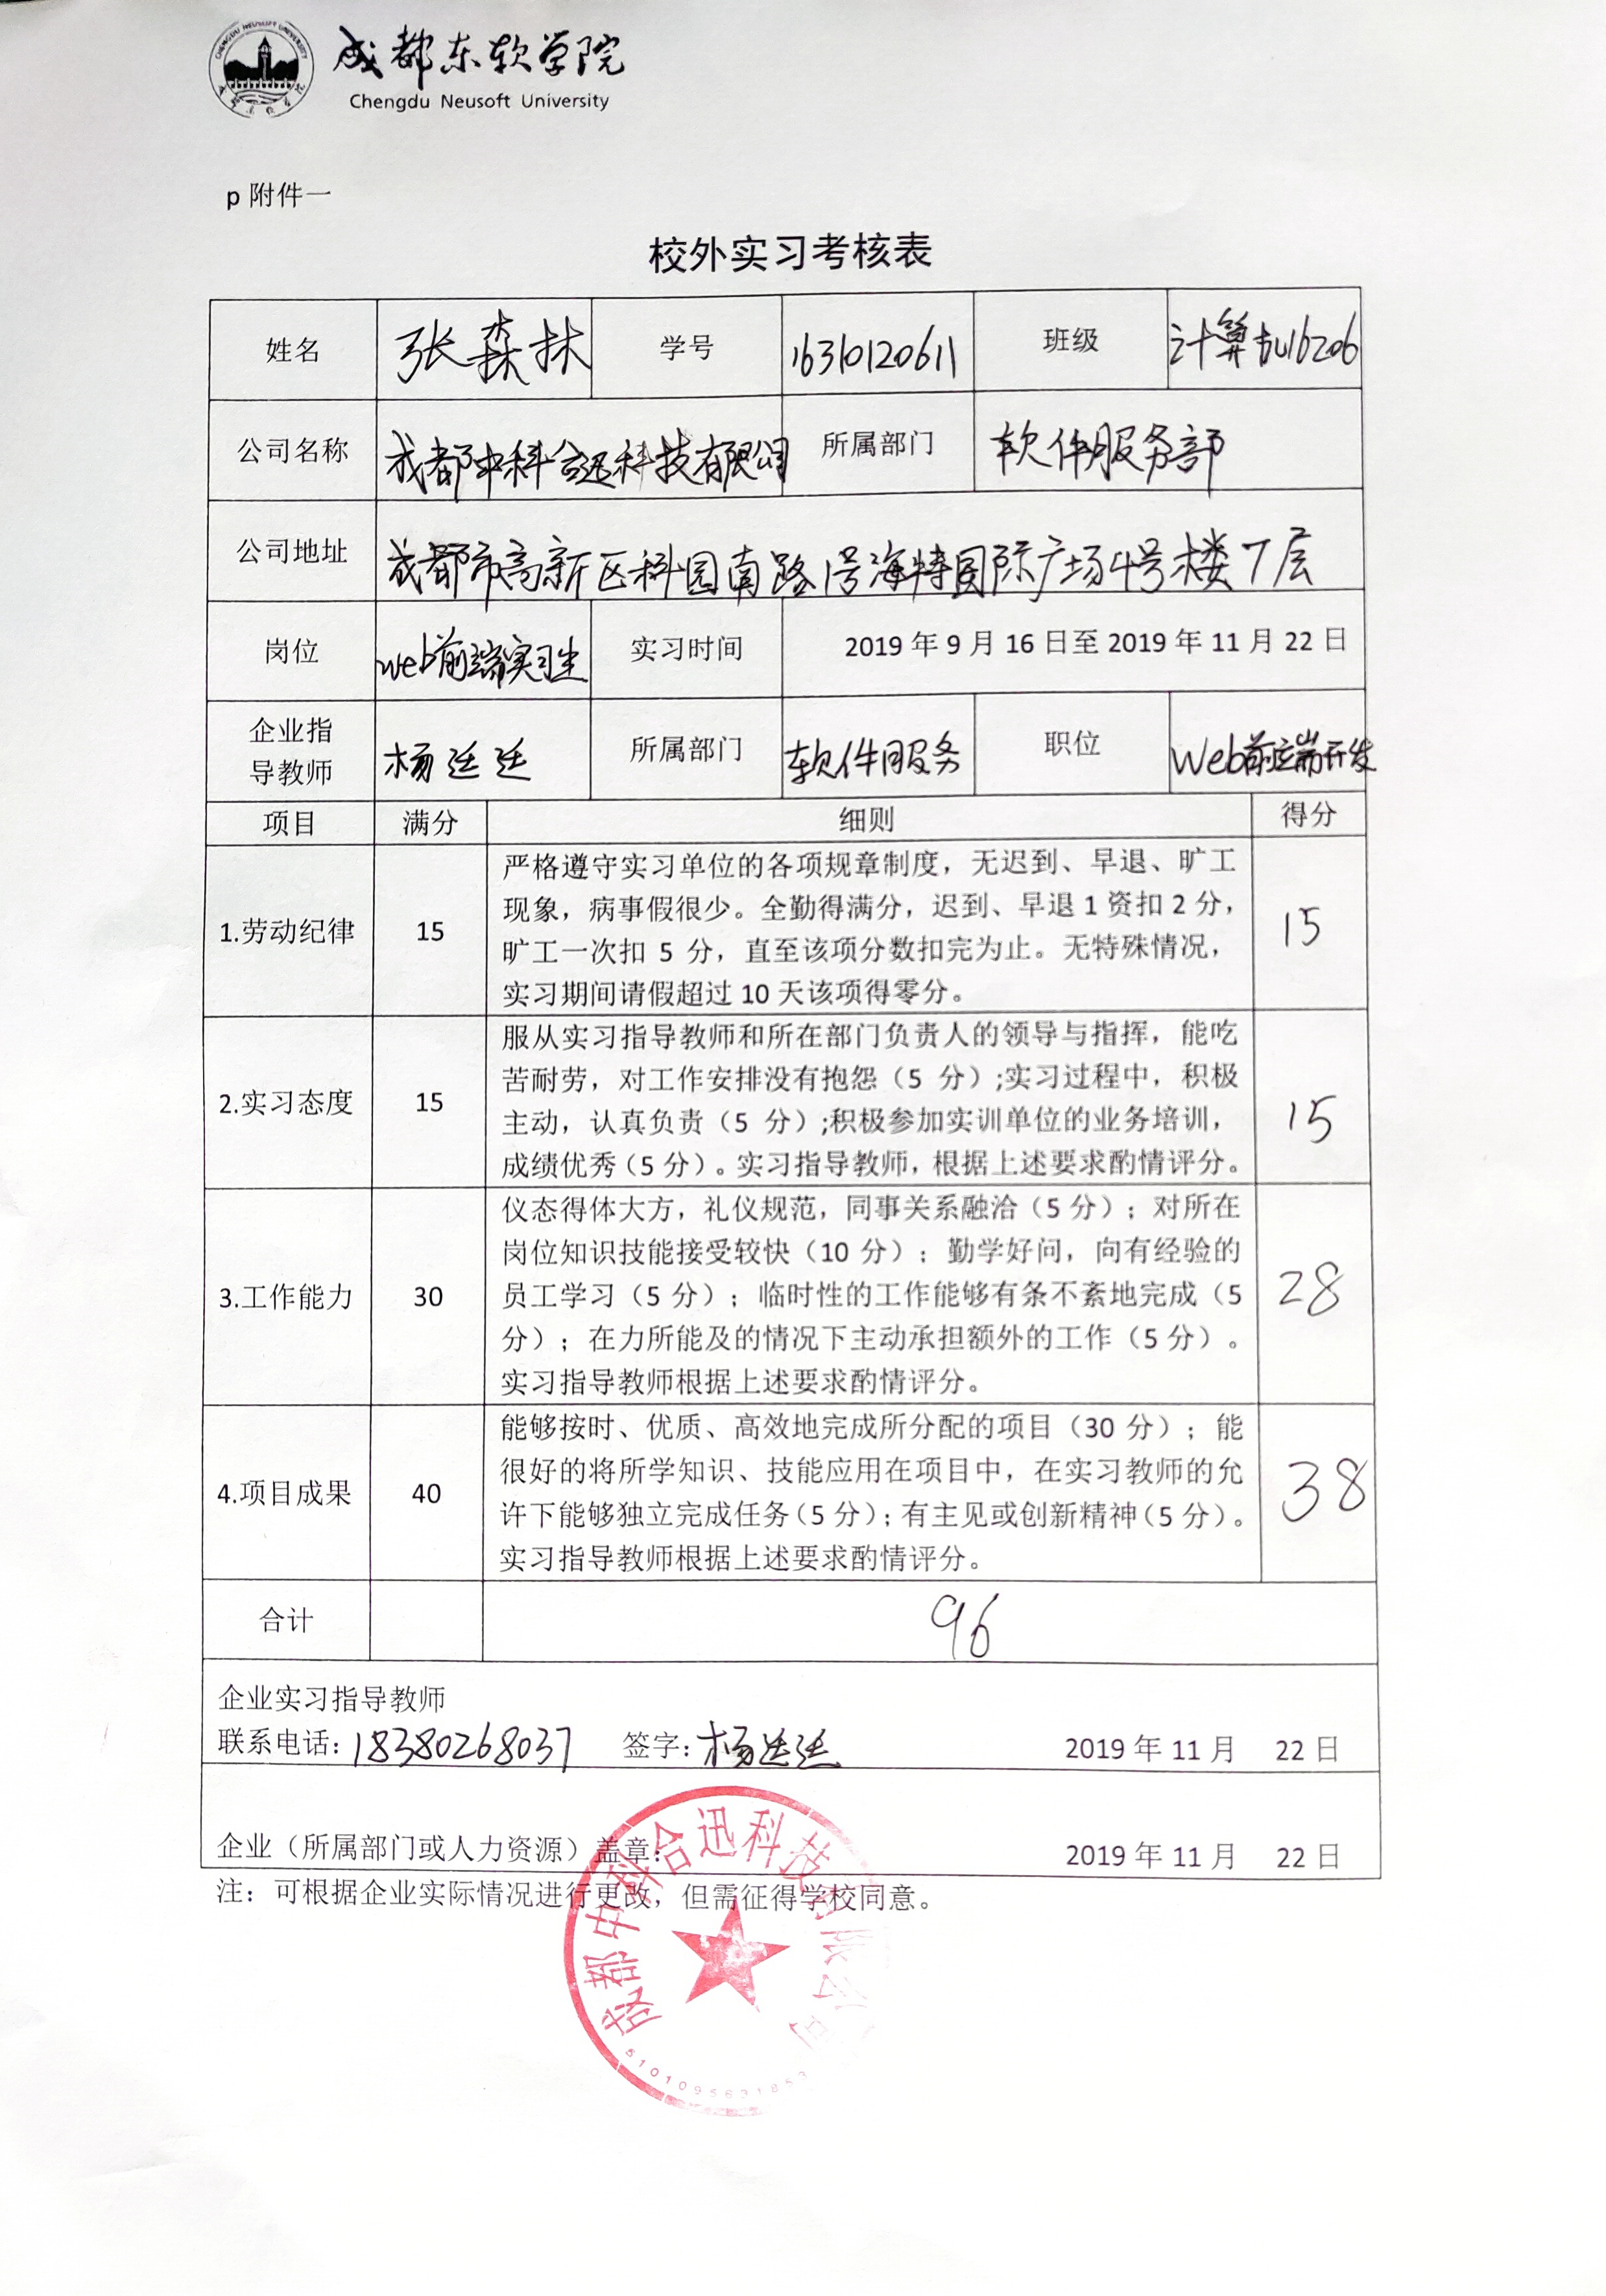 成都东软学院
Chengdu Neusoft University
p 附件一
校外实习考核表
姓名 张森林 学号 16310120611 班级 计算机16206
公司名称 成都中科合迅科技有限公司 所属部门 软件服务部
公司地址 成都市高新区科园南路1号海特国际广场4号楼7层
岗位 web前端实习生 实习时间 2019 年 9 月 16 日至 2019 年 11 月 22 日
企业指
导教师 杨廷廷 所属部门 软件服务 职位 Web前端开发
项目 满分 细则 得分
1.劳动纪律 15 严格遵守实习单位的各项规章制度，无迟到、早退、旷工
现象，病事假很少。全勤得满分，迟到、早退 1 资扣 2 分，
旷工一次扣 5 分，直至该项分数扣完为止。无特殊情况，
实习期间请假超过 10 天该项得零分。
15
2.实习态度 15 服从实习指导教师和所在部门负责人的领导与指挥，能吃
苦耐劳，对工作安排没有抱怨（5 分）;实习过程中，积极
主动，认真负责（5 分）;积极参加实训单位的业务培训，
成绩优秀（5 分）。实习指导教师，根据上述要求酌情评分。
15
3.工作能力 30 仪态得体大方，礼仪规范，同事关系融洽（5 分）；对所在
岗位知识技能接受较快（10 分）；勤学好问，向有经验的
员工学习（5 分）；临时性的工作能够有条不紊地完成（5
分）；在力所能及的情况下主动承担额外的工作（5 分）。
实习指导教师根据上述要求酌情评分。
28
4.项目成果 40 能够按时、优质、高效地完成所分配的项目（30 分）；能
很好的将所学知识、技能应用在项目中，在实习教师的允
许下能够独立完成任务（5 分）；有主见或创新精神（5 分）。
实习指导教师根据上述要求酌情评分。
38
合计 96
企业实习指导教师
联系电话：18380268037 签字：杨廷廷 2019 年 11 月 22 日
企业（所属部门或人力资源）盖章： 2019 年 11 月 22 日
注：可根据企业实际情况进行更改，但需征得学校同意。
成都中科合迅科技有限公司